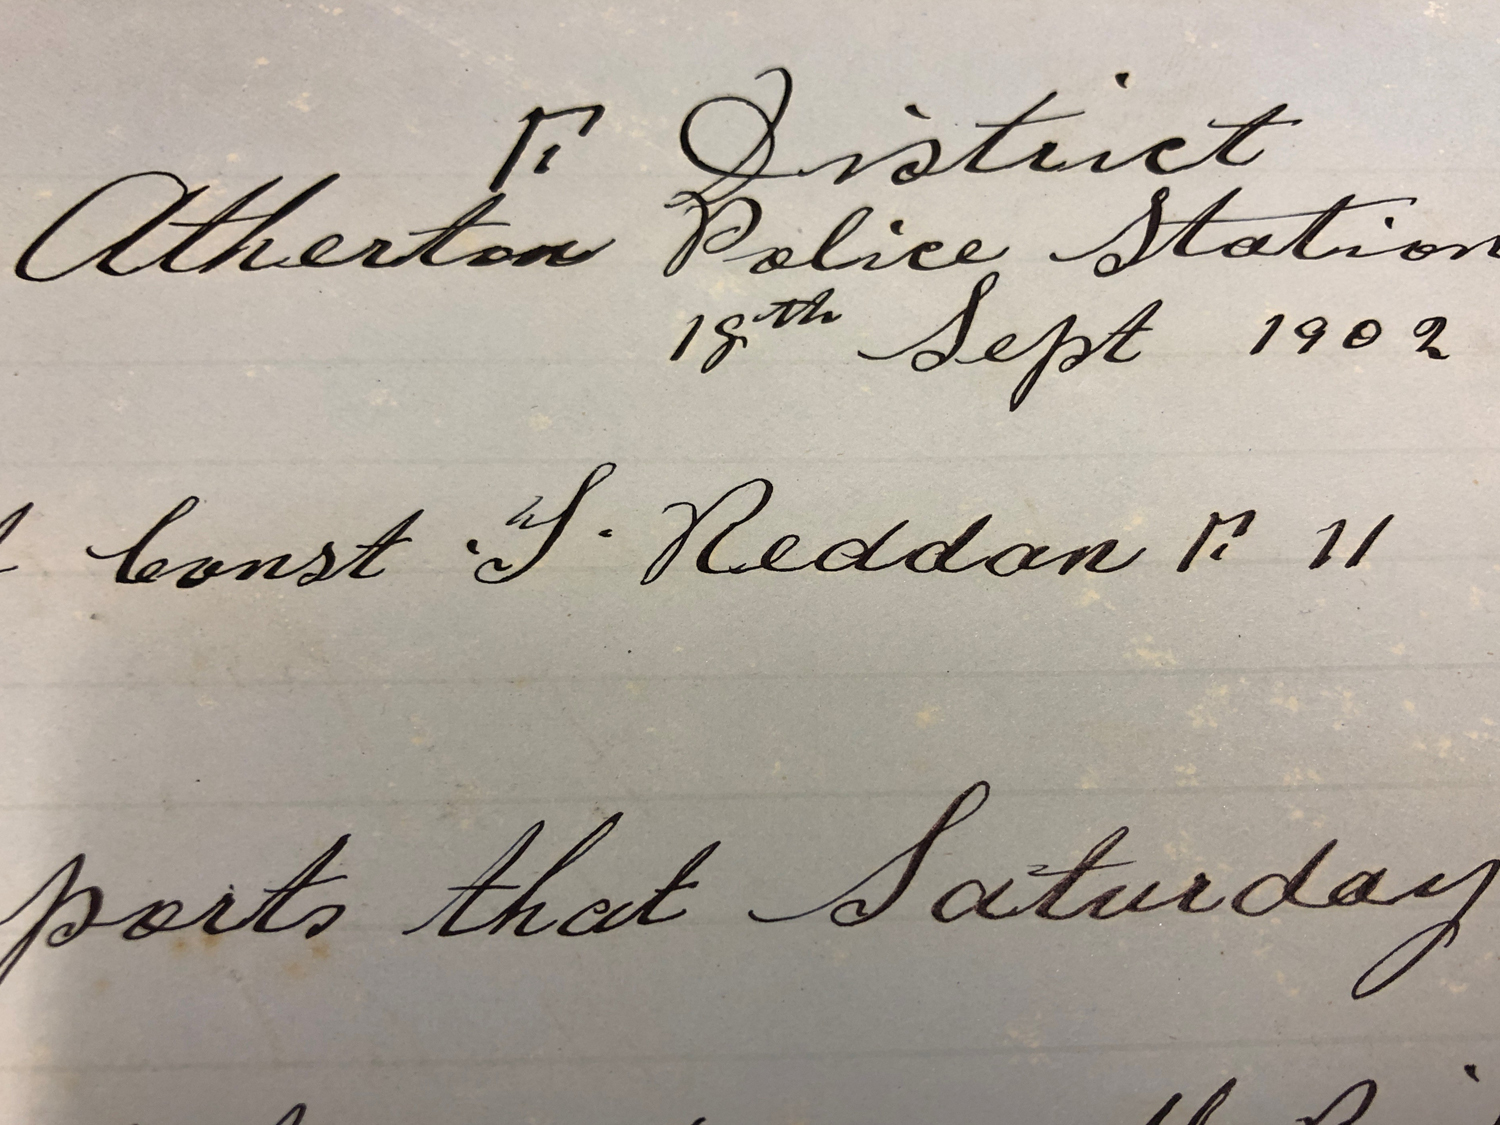 F District
Atherton Police Station
18th Sept 1902
Const T. Reddan F. 11
ports that Saturday